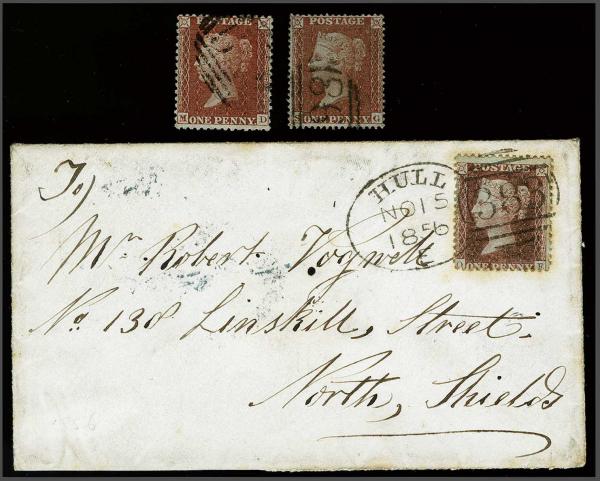 POSTAGE POSTAGE
M ONE PENNY D ONE PENNY G
POSTAGE
HULL
NO 15
1856
388
ONE PENNY
To)
Mr Robert Vogwell
No. 138 Linskill, Street.
North, Shields